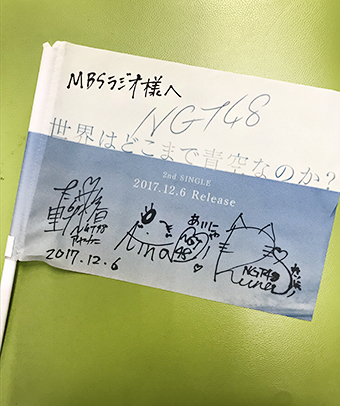 MBSラジオ様へ
NGT48
世界はどこまで青空なのか?
2nd SINGLE
2017.12.6 Release
NGT48
2017.12.6
あいにゃ
Aina
NGT
48
NGT48